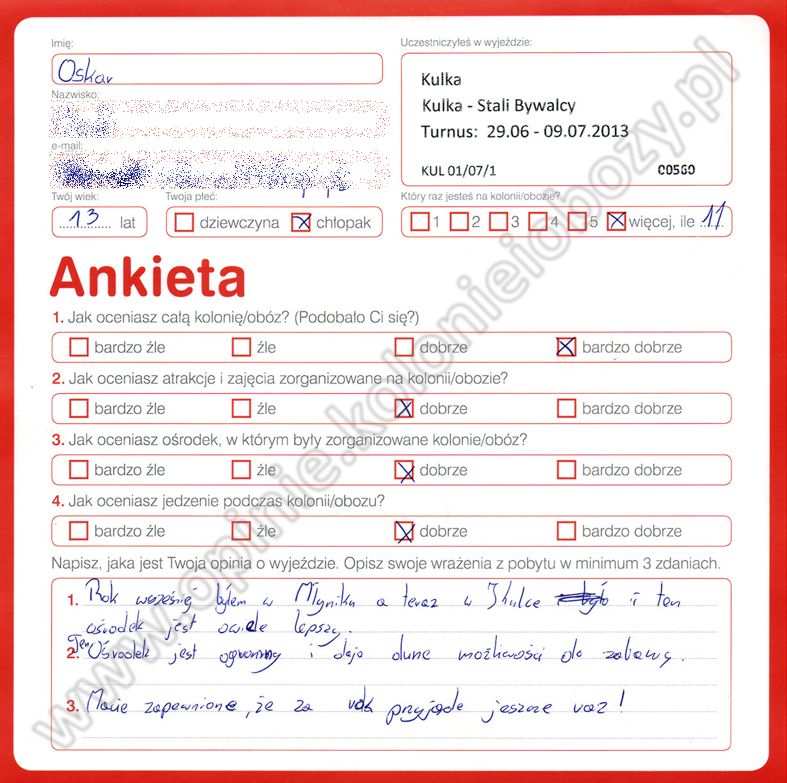 Imię:
Oskar
Uczestniczyłeś w wyjeździe:
Kulka
Kulka - Stali Bywalcy
Turnus: 29.06 - 09.07.2013
KUL 01/07/1 00560
Nazwisko:
e-mail:
Twój wiek:
13 lat
Twoja płeć:
dziewczyna chłopak
Który raz jesteś na kolonii/obozie?
1 2 3 4 5 więcej, ile 11
Ankieta
1. Jak oceniasz całą kolonię/obóz? (Podobało Ci się?)
bardzo źle źle dobrze bardzo dobrze
2. Jak oceniasz atrakcje i zajęcia zorganizowane na kolonii/obozie?
bardzo źle źle dobrze bardzo dobrze
3. Jak oceniasz ośrodek, w którym były zorganizowane kolonie/obóz?
bardzo źle źle dobrze bardzo dobrze
4. Jak oceniasz jedzenie podczas kolonii/obozu?
bardzo źle źle dobrze bardzo dobrze
Napisz, jaka jest Twoja opinia o wyjeździe. Opisz swoje wrażenia z pobytu w minimum 3 zdaniach.
1. Rok byłem w Młyniku a teraz w i ten
ośrodek jest lepszy.
2. Ten Ośrodek jest i daje możliwości do zabawy.
3. Macie zapewnione, że za rok przyjade jeszcze raz!
www.opinie.kolonieiobozy.pl